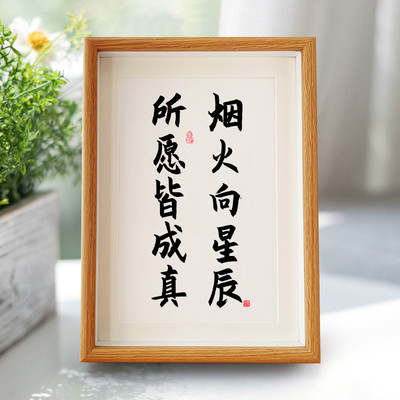 烟火向星辰
所愿皆成真